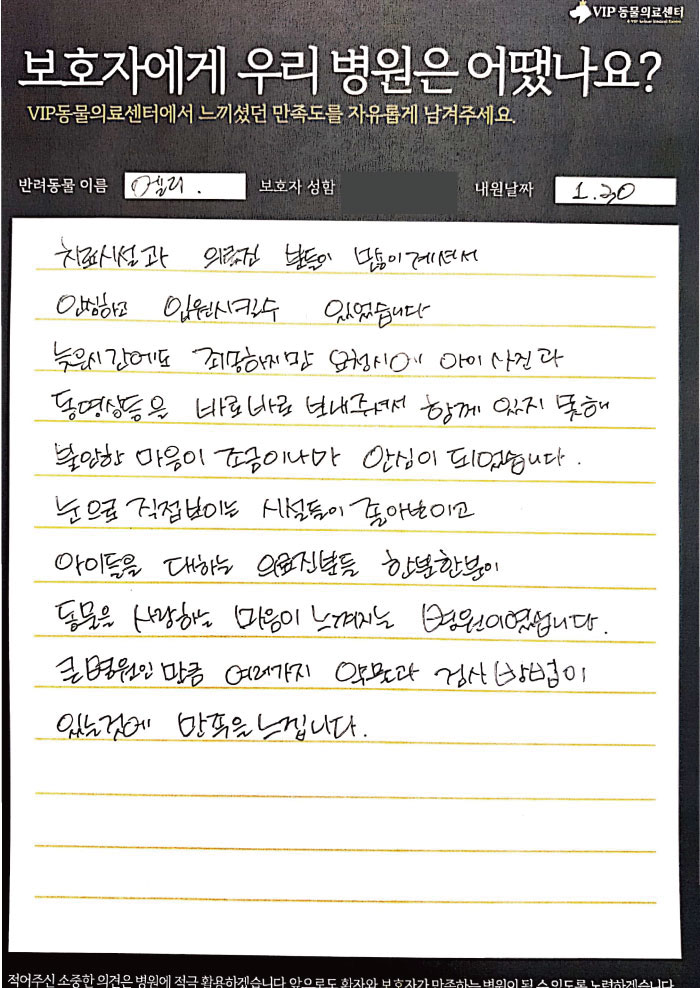 VIP 동물의료센터
보호자에게 우리 병원은 어땠나요?
VIP동물의료센터에서 느끼셨던 만족도를 자유롭게 남겨주세요.
반려동물 이름 엘리. 보호자 성함 내원날짜 1.30
치료시설과 의료진 분들이 많이계셔서
안심하고 입원시킬수 있었습니다
늦은시간에도 죄송하지만 요청시에 아이 사진과
동영상등을 바로바로 보내주셔서 함께 있지 못해
불안한 마음이 조금이나마 안심이 되었습니다.
눈으로 직접보이는 시설들이 좋아보이고
아이들을 대하는 의료진분들 한분한분이
동물을 사랑하는 마음이 느껴지는 병원이였습니다.
큰병원인 만큼 여러가지 약물과 검사 방법이
있는것에 만족을느낍니다.
적어주신 소중한 의견은 병원에 적극 활용하겠습니다. 앞으로도 환자와 보호자가 만족하는 병원이 될 수 있도록 노력하겠습니다.